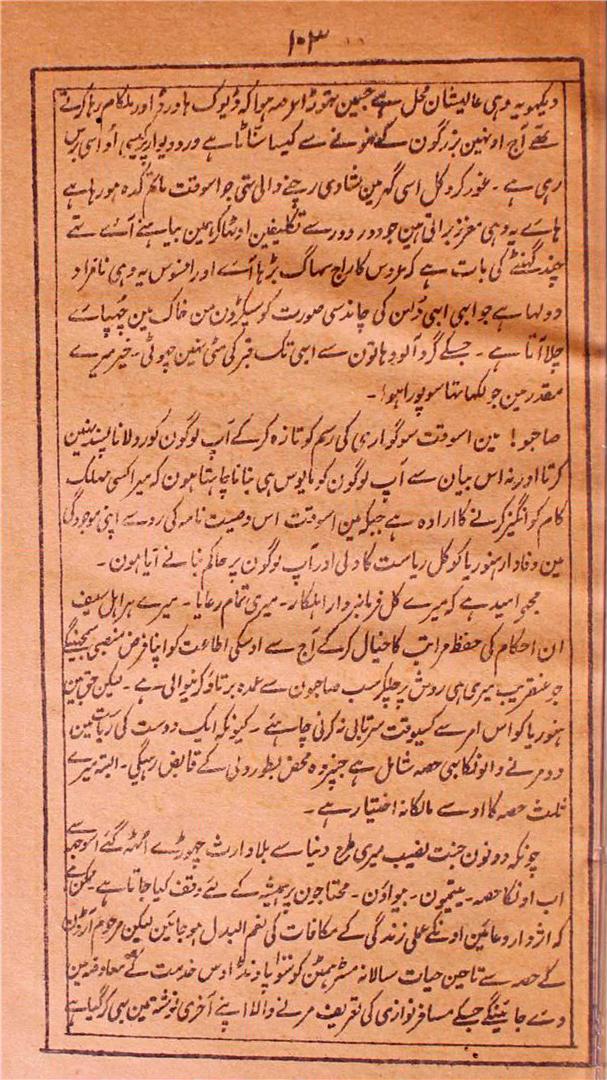 ۱۰۳
دیکھو یہ وہی عالیشان محل ہے جسمین تھوڑا عرصہ ہوا کہ ڈیوک ہاورڈ اور ملکام رہا کرتے
تھے آج اونہین بزرگون کے نہونے سے کیسا سناٹا ہے درو دیوار پر کیسی اوداسی برس
رہی ہے ۔ غور کرو کل اسی گھر مین شادی رچنے والی تھی جو اسوقت ماتم کدہ ہو رہا ہے
ہاے یہ وہی معزز براتی ہین جو دور دور سے تکلیفین اوٹھا کر ہمین بیاہنے آئے تھے
چند گھنٹے کی بات ہے کہ عروس کا راج سہاگ بڑہانے آئے اور افسوس یہ وہی نامراد
دولہا ہے جو ابھی ابھی دُلہن کی چاند سی صورت کو سیکڑون من خاک مین چھپاے
چلا آتا ہے ۔ جسکے گرد آلود ہاتون سے ابھی تک قبر کی مٹی نہین چھوٹی ۔ خیر میرے
مقدر مین جو لکھا تھا سو پورا ہوا ۔
صاحبو ! مین اسوقت سوگواری کی رسم کو تازہ کرکے آپ لوگون کو رولانا پسند نہین
کرتا اور نہ اس بیان سے آپ لوگون کو مایوس ہی بنانا چاہتا ہون کہ میرا کسی مہلک
کام کو انگیز کرنے کا ارادہ ہے جبکہ مین اسوقت اس وصیت نامہ کی رو سے اپنی موجودگی
مین وفادار ہنوریا کو کل ریاست کا ولی اور آپ لوگون پر حاکم بنانے آیا ہون ۔
مجھے امید ہے کہ میرے کل فرمانبردار اہلکار ۔ میری تمام رعایا ۔ میرے ہر اہل سیف
ان احکام کی حفظ مراتب کا خیال کرکے آج سے اوسکی اطاعت کو اپنا فرض منصبی سمجھینگے
جو عنقریب میری ہی روش پر چلکر سب صاحبون سے عمدہ برتاؤ کرنیوالی ہے ۔ لیکن
ہنوریا کو اس امر سے کسیوقت سرتابی نہ کرنی چاہئے ۔ کیونکہ ایک دوست کی ریاست مین
دو مرنے والونکا بھی حصہ شامل ہے جنپر وہ محض بطور ولی کے قابض رہیگی ۔ البتہ میرے
ثلث حصہ کا اوسے مالکانہ اختیار ہے ۔
چونکہ دونون جنت نصیب میری طرح دنیا سے بلا وارث چھوڑے اُٹھہ گئے اسوجہ سے
اب اونکا حصہ ۔ یتیمون ۔ بیواؤن ۔ محتاجون پر ہمیشہ کے لئے وقف کیا جاتا ہے
کہ اونکے عملی زندگی کے مکافات کی نعم البدل ہو جائین لیکن مرحوم
کے حصہ سے تاحین حیات سالانہ مسٹر ہمٹن کو پاونڈ اوس خدمت کے معاوضہ مین
دے جائینگے جسکے مسافر نوازی کی تعریف مرنے والا اپنے آخری نوشتہ مین بھی کر گیا ہے